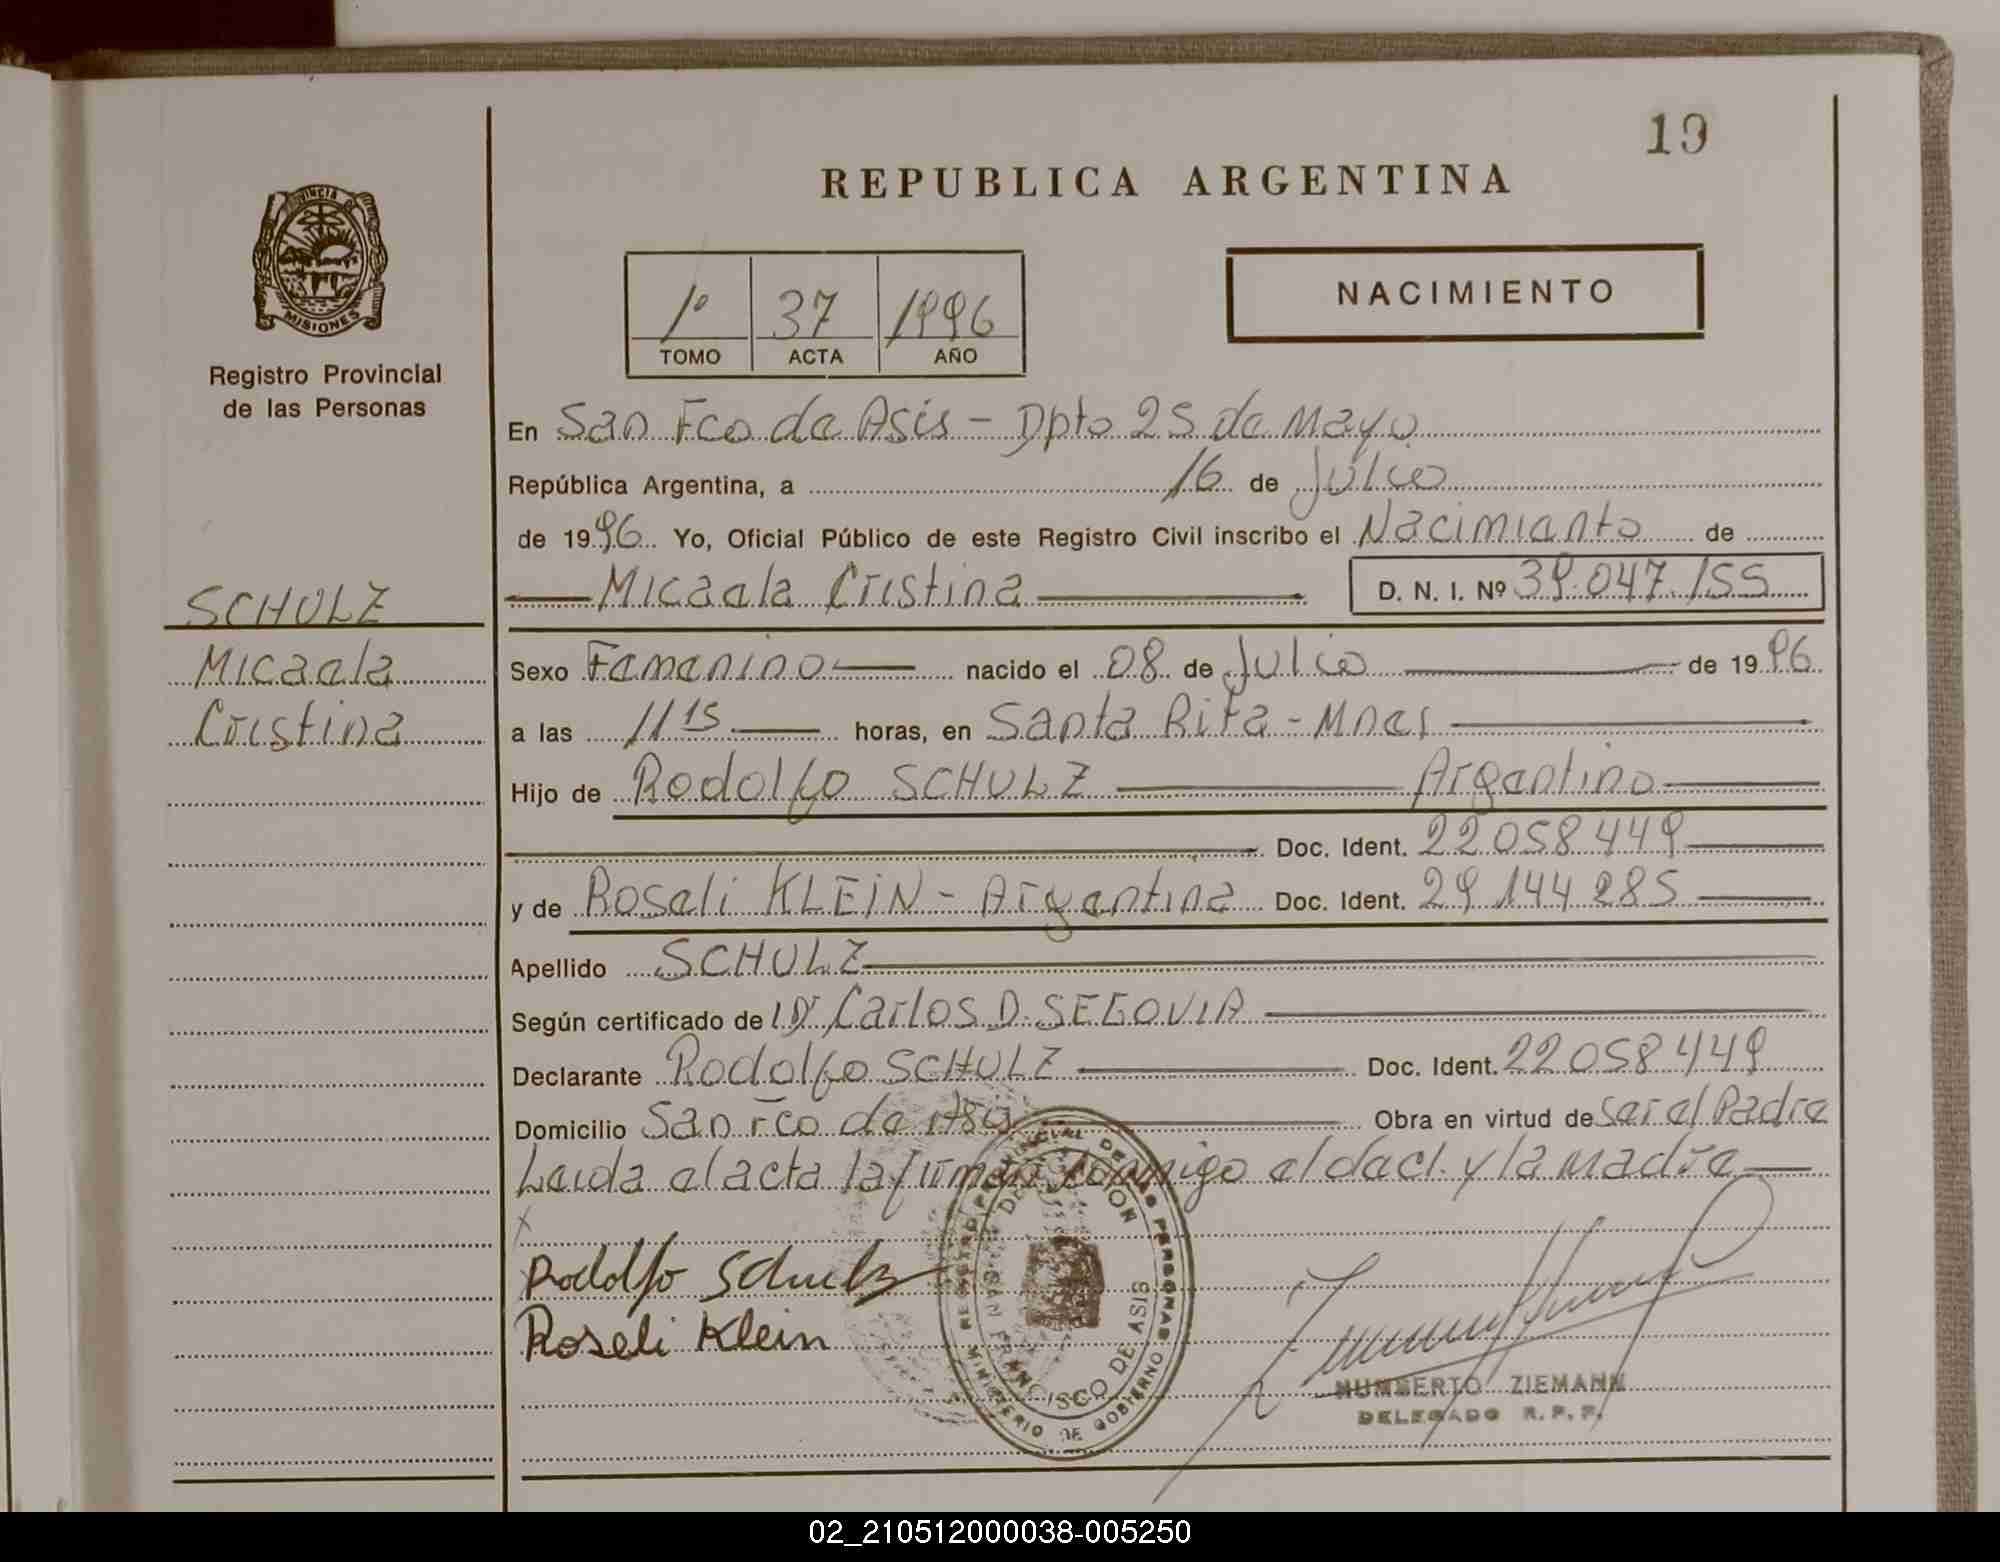 19
REPUBLICA ARGENTINA
PROVINCIA DE
MISIONES
Registro Provincial
de las Personas
1º 37 1996
TOMO ACTA AÑO
NACIMIENTO
En San Fco de Asis - Dpto 25 de Mayo
República Argentina, a 16 de Julio
de 1996 Yo, Oficial Público de este Registro Civil inscribo el Nacimiento de
Micaela Cristina D. N. I. Nº 39.047.155
SCHULZ
Micaela
Cristina
Sexo Femenino nacido el 08 de Julio de 1996
a las 11 15 horas, en Santa Rita - Mnes
Hijo de Rodolfo SCHULZ Argentino
Doc. Ident. 22.058.449
y de Roseli KLEIN - Argentina Doc. Ident. 29.144.285
Apellido SCHULZ
Según certificado del Dr Carlos D. SEGOVIA
Declarante Rodolfo SCHULZ Doc. Ident. 22.058.449
Domicilio San Fco de Asis Obra en virtud de Ser el Padre
Leida el acta la firman conmigo el decl. y la madre
Rodolfo Schulz
Roseli Klein
REGISTRO PROVINCIAL DE LAS PERSONAS
MINISTERIO DE GOBIERNO
SAN FRANCISCO DE ASIS
HUMBERTO ZIEMANN
DELEGADO R. P. P.
02_210512000038-005250